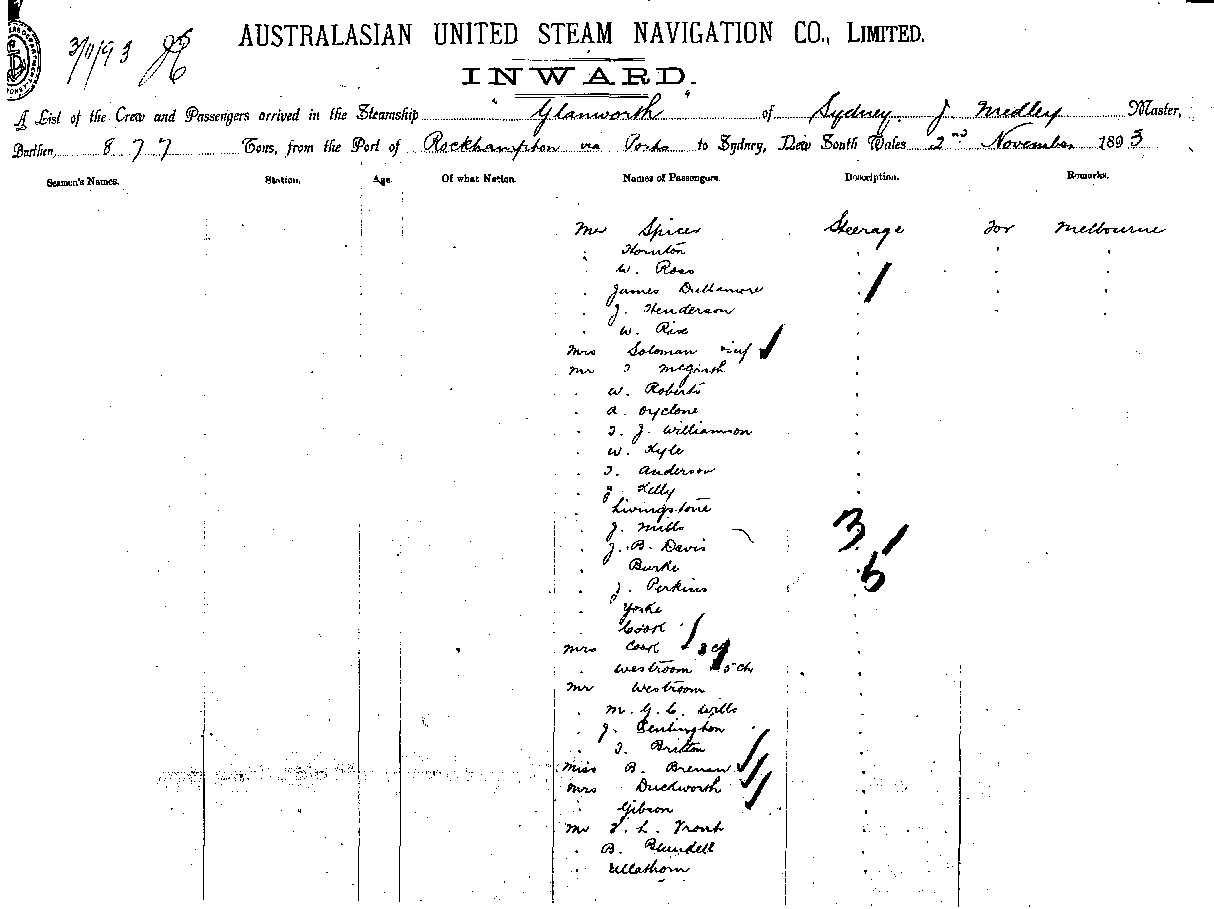 3/11/93
AUSTRALASIAN UNITED STEAM NAVIGATION CO., LIMITED.
INWARD.
A List of the Crew and Passengers arrived in the Steamship "Glanworth" of Sydney, J. Medley Master,
Burthen, 877 Tons, from the Port of Rockhampton via Ports to Sydney, New South Wales 2nd November 1893
Seamen's Names. Station. Age. Of what Nation. Names of Passengers. Description. Remarks.
Mr Spicer Steerage for Melbourne
" Hornton " " "
" W. Ross " " "
" James Dullamore " " "
" J. Henderson " " "
" W. Rise "
Mrs Soloman + inf "
Mr T McGrath "
" W. Roberts "
" A. "
" T. J. Williamson "
" W. Kyle "
" T. Anderson "
" J. Kelly "
" Livingstone "
" J. Mills " 3
" J. B. Davis "
" Burke " 5
" J. Perkins "
" Yorke "
" Cook "
Mrs Cook + 3 ch "
" Westroom + 5 Ch "
Mr Westroom "
" M. G. C. Wills "
" J. "
" T. Britton "
Miss B. Brenan "
Mrs Duckworth "
" Gibson "
Mr F. L. Trout "
" B. Blundell "
" Ullathorn "